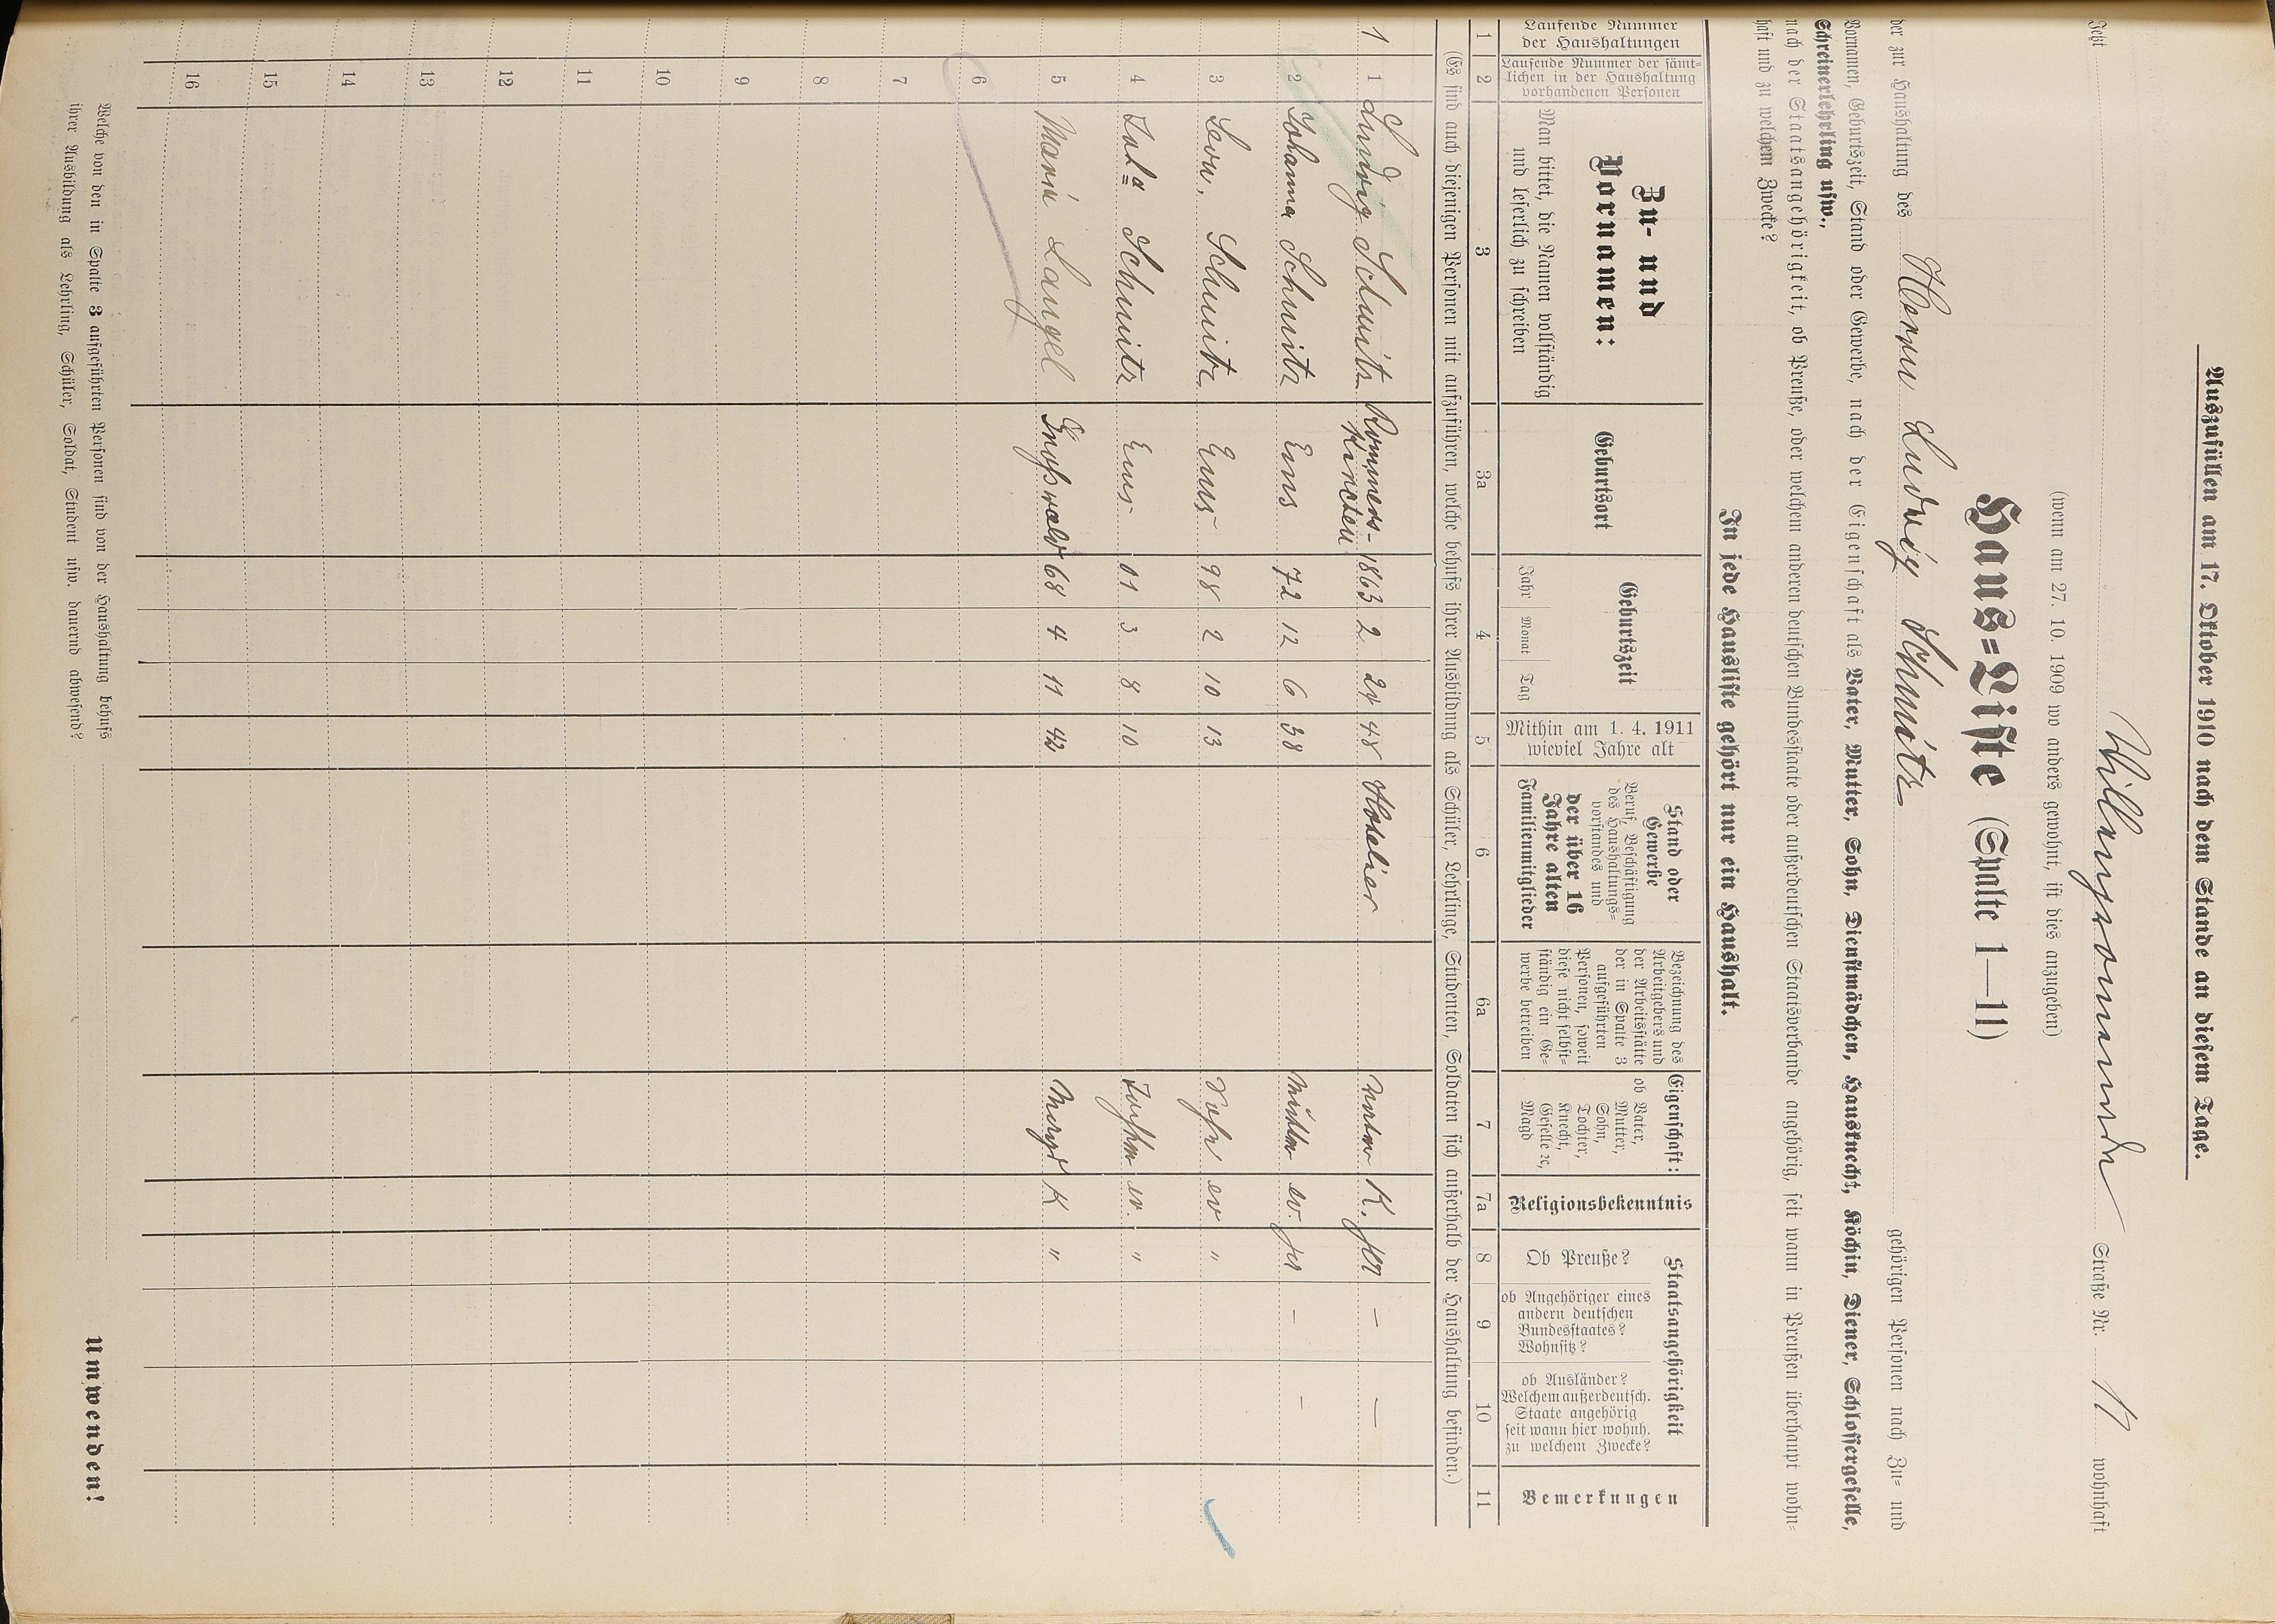 Auszufüllen am 17. Oktober 1910 nach dem Stande an diesem Tage.
Jetzt Straße Nr. 11 wohnhaft
(wenn am 27. 10. 1909 wo anders gewohnt, ist dies anzugeben)
Haus=Liste (Spalte 1—11)
der zur Haushaltung des Herrn Ludwig Schmitz gehörigen Personen nach Zu= und
Vornamen, Geburtszeit, Stand oder Gewerbe, nach der Eigenschaft als Vater, Mutter, Sohn, Dienstmädchen, Hausknecht, Köchin, Diener, Schlossergeselle,
Schreinerlehrling usw.,
nach der Staatsangehörigkeit, ob Preuße, oder welchem anderen deutschen Bundesstaate oder außerdeutschen Staatsverbande angehörig, seit wann in Preußen überhaupt wohn=
haft und zu welchem Zwecke?
In jede Hausliste gehört nur ein Haushalt.
Laufende Nummer
der Haushaltungen
Laufende Nummer der sämt=
lichen in der Haushaltung
vorhandenen Personen
Zu- und
Vornamen:
Man bittet, die Namen vollständig
und leserlich zu schreiben
Geburtsort
Geburtszeit
Jahr Monat Tag
Mithin am 1. 4. 1911
wieviel Jahre alt
Stand oder
Gewerbe
Beruf, Beschäftigung
des Haushaltungs=
vorstandes und
der über 16
Jahre alten
Familienmitglieder
Bezeichnung des
Arbeitgebers und
der Arbeitsstätte
der in Spalte 3
aufgeführten
Personen, soweit
diese nicht selbst=
ständig ein Ge=
werbe betreiben
Eigenschaft:
ob Vater,
Mutter,
Sohn,
Tochter,
Knecht,
Geselle ec,
Magd
Religionsbekenntnis
Staatsangehörigkeit
Ob Preuße?
ob Angehöriger eines
andern deutschen
Bundesstaates?
Wohnsitz?
ob Ausländer?
Welchem außerdeutsch.
Staate angehörig
seit wann hier wohnh.
zu welchem Zwecke?
Bemerkungen
1 2 3 3a 4 5 6 6a 7 7a 8 9 10 11
(Es sind auch diejenigen Personen mit aufzuführen, welche behufs ihrer Ausbildung als Schüler, Lehrlinge, Studenten, Soldaten sich außerhalb der Haushaltung befinden.)
1 1 Ludwig Schmitz Rommers-kirchen 1863 2 24 48 Hotelier Vater K. — —
2 Johanna Schmitz Ems 72 12 6 38 Mutter ev. — —
3 Schmitz Ems 98 2 10 13 Sohn ev "
4 Schmitz Ems 01 3 8 10 Tochter ev "
5 Marie Langel 68 4 11 42 Magd K "
6
7
8
9
10
11
12
13
14
15
16
Welche von den in Spalte 3 aufgeführten Personen sind von der Haushaltung behufs
ihrer Ausbildung als Lehrling, Schüler, Soldat, Student usw. dauernd abwesend?
Umwenden!